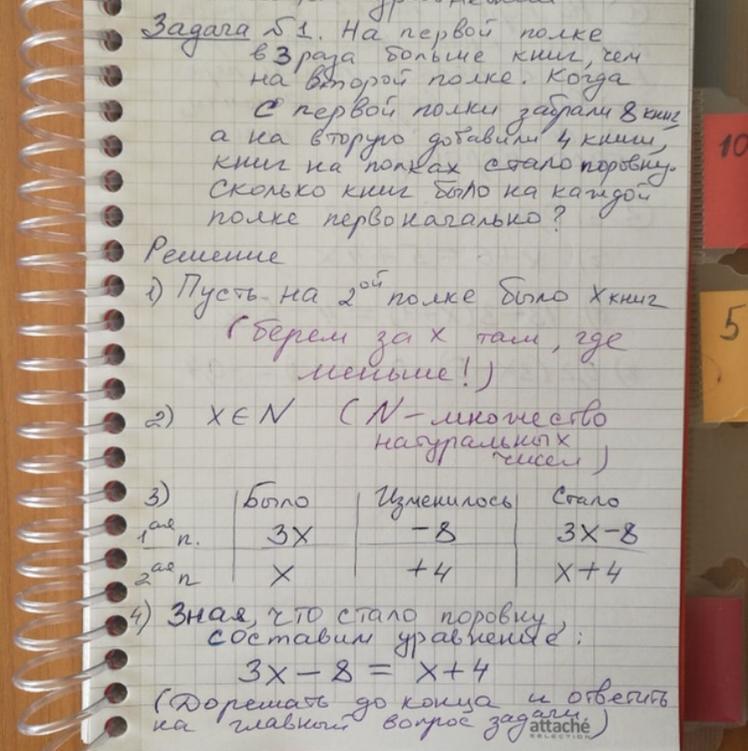 Задача №1. На первой полке
в 3 раза больше книг, чем
на второй полке. Когда
с первой полки забрали 8 книг,
а на вторую добавили 4 книги,
книг на полках стало поровну.
Сколько книг было на каждой
полке первоначально?
Решение
1) Пусть на 2ой полке было x книг
(берем за x там, где
меньше!)
2) x ∈ N (N – множество
натуральных
чисел)
3) Было Изменилось Стало
1ая п. 3x –8 3x–8
2ая п x +4 x+4
4) Зная, что стало поровну,
составим уравнение:
3x – 8 = x+4
(Дорешать до конца и ответить
на главный вопрос задачи)
attaché
SELECTION
10
5